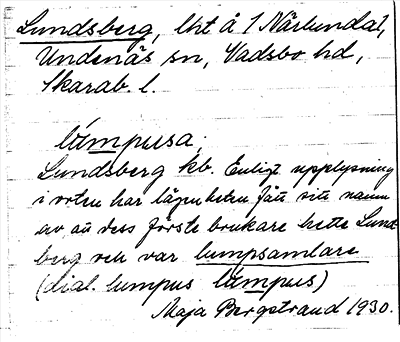 Lundsberg, lht å 1 Närlunda1,
Undenäs sn, Vadsbo hd,
Skarab. l.
lúmpusa.
Lundsberg kb. Enligt upplysning
i orten har lägenheten fått sitt namn
av att dess förste brukare hette Lund-
berg och var lumpsamlare
(dial. lumpus lúmpus)
Maja Bergstrand 1930.